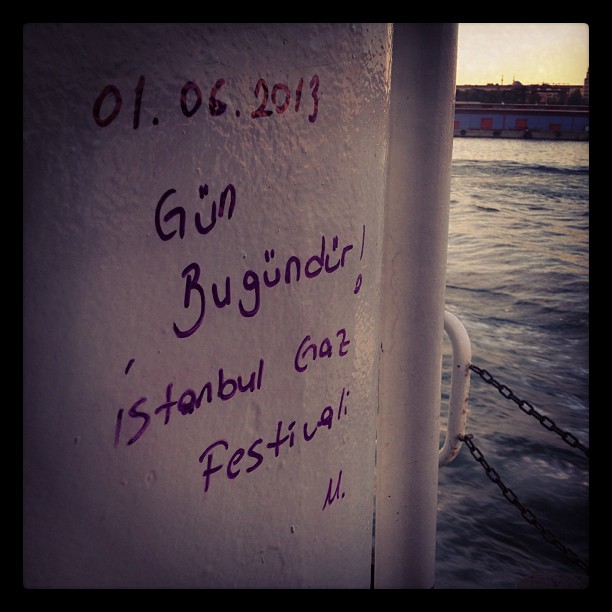 01.06.2013
Gün
Bugündür!
İstanbul Gaz
Festivali
M.